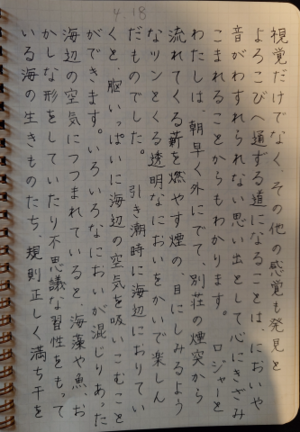 4 18
視覚だけでなく、その他の感覚も発見と
よろこびへ通ずる道になることは、においや
音がわすれられない思い出として心にきざみ
こまれることからもわかります。ロジャーと
わたしは、朝早く外にでて、別荘の煙突から
流れてくる薪を燃やす煙の、目にしみるよう
なツンとくる透明なにおいをかいで楽しん
だものでした。 引き潮時に海辺におりてい
くと、胸いっぱいに海辺の空気を吸いこむこと
ができます。いろいろなにおいが混じりあった
海辺の空気につつまれていると、海藻や魚、お
かしな形をしていたり不思議な習性をもって
いる海の生きものたち、規則正しく満ち干を